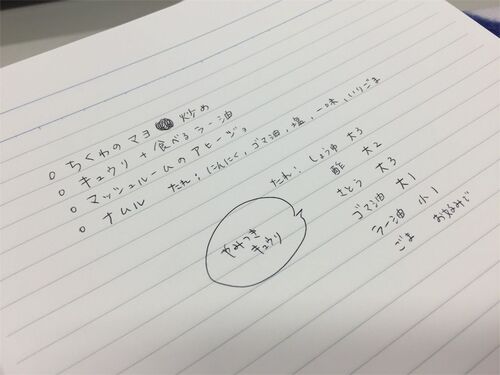 ○ ちくわのマヨ炒め
○ キュウリ + 食べるラー油
○ マッシュルームのアヒージョ。
○ ナムル たれ; にんにく, ゴマ油, 塩, 一味, いりごま
やみつき
キュウリ
たれ; しょうゆ 大3
酢 大2
さとう 大3
ゴマ油 大1
ラー油 小1
ごま お好みで